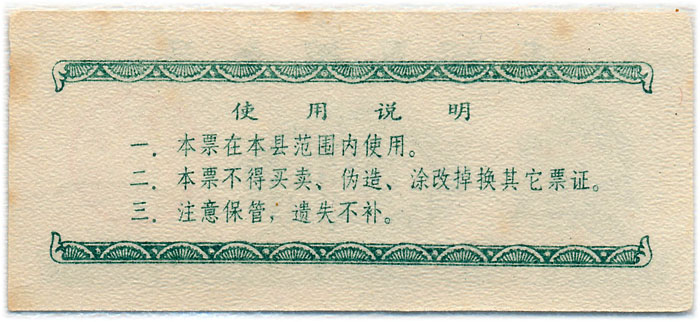 使用说明
一．本票在本县范围内使用。
二．本票不得买卖、伪造、涂改掉换其它票证。
三．注意保管，遗失不补。